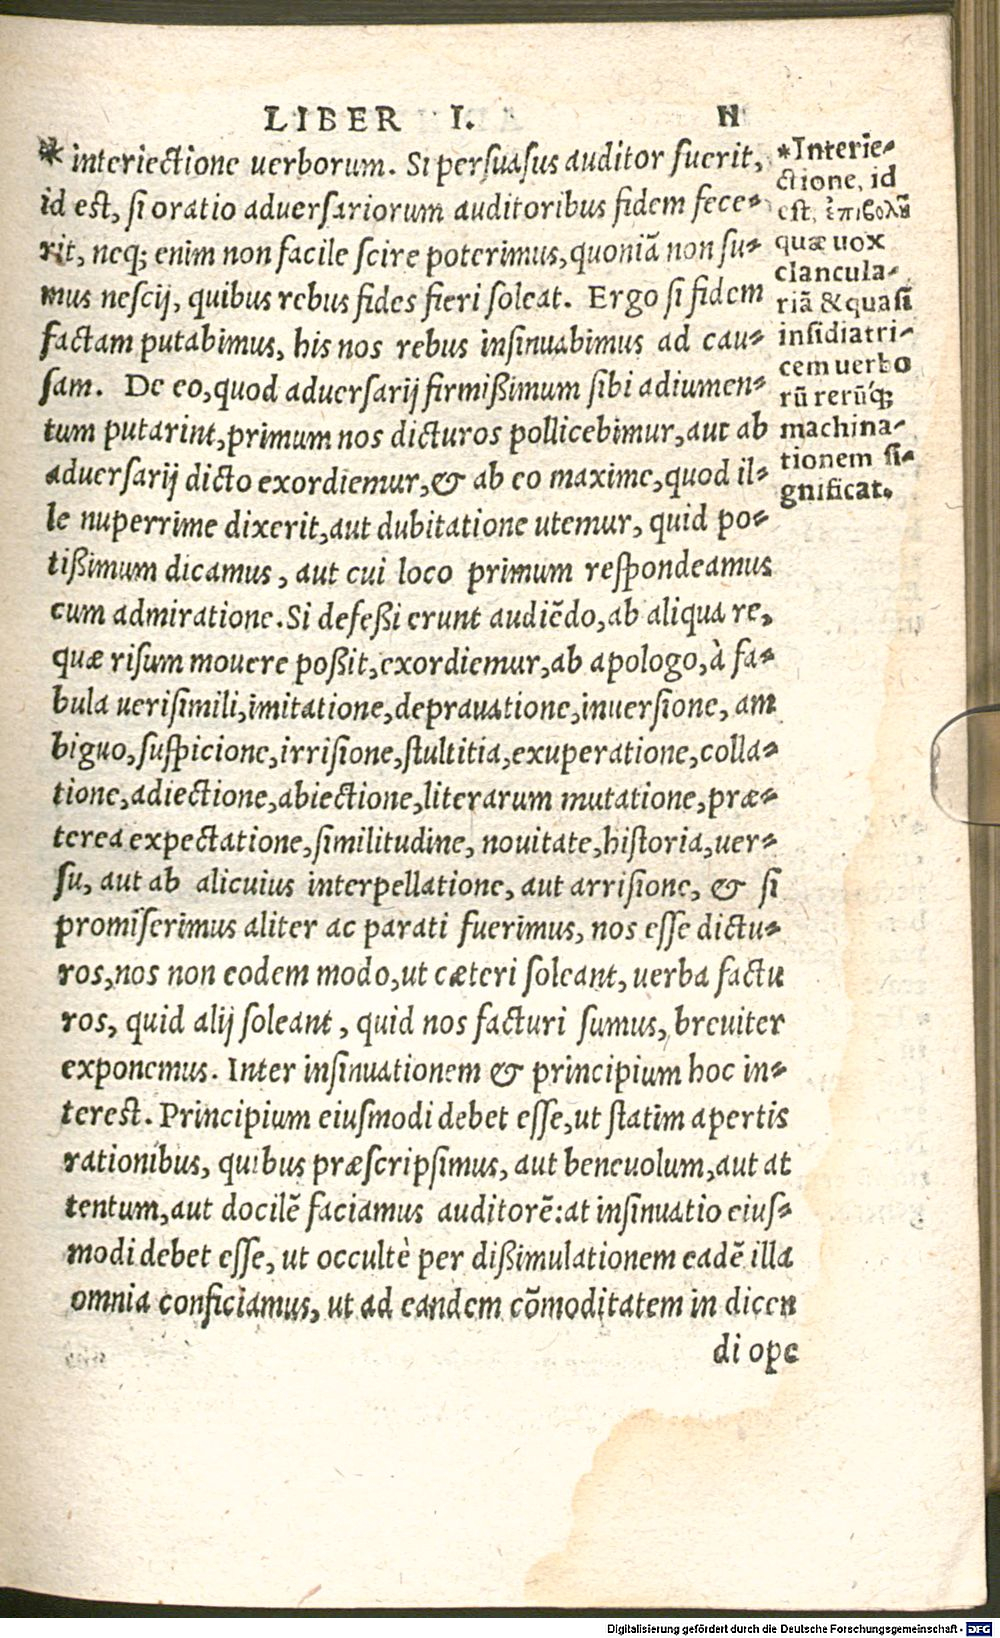 LIBER I. 11
* interiectione uerborum. Si persuasus auditor fuerit,
id est, si oratio aduersariorum auditoribus fidem fece-
rit, neq; enim non facile scire poterimus, quoniã non su-
mus nescij, quibus rebus fides fieri soleat. Ergo si fidem
factam putabimus, his nos rebus insinuabimus ad cau-
sam. De eo, quod aduersarij firmißimum sibi adiumen-
tum putarint, primum nos dicturos pollicebimur, aut ab
aduersarij dicto exordiemur, & ab eo maxime, quod il-
le nuperrime dixerit, aut dubitatione utemur, quid po-
tißimum dicamus, aut cui loco primum respondeamus
cum admiratione. Si defeßi erunt audiẽdo, ab aliqua re,
quæ risum mouere poßit, exordiemur, ab apologo, à fa-
bula uerisimili, imitatione, deprauatione, inuersione, am
biguo, suspicione, irrisione, stultitia, exuperatione, colla-
tione, adiectione, abiectione, literarum mutatione, præ-
terea expectatione, similitudine, nouitate, historia, uer-
su, aut ab alicuius interpellatione, aut arrisione, & si
promiserimus aliter ac parati fuerimus, nos esse dictu-
ros, nos non eodem modo, ut cæteri soleant, uerba factu
ros, quid alij soleant, quid nos facturi sumus, breuiter
exponemus. Inter insinuationem & principium hoc in-
terest. Principium eiusmodi debet esse, ut statim apertis
rationibus, quibus præscripsimus, aut beneuolum, aut at
tentum, aut docilẽ faciamus auditorẽ: at insinuatio eius-
modi debet esse, ut occultè per dißimulationem eadẽ illa
omnia conficiamus, ut ad eandem cõmoditatem in dicen
di ope
*Interie-
ctione, id
est, ἐπιβολῇ
quæ uox
clancula-
riã & quasi
insidiatri-
cem uerbo
rũ rerũq́;
machina-
tionem si-
gnificat.
Digitalisierung gefördert durch die Deutsche Forschungsgemeinschaft - DFG